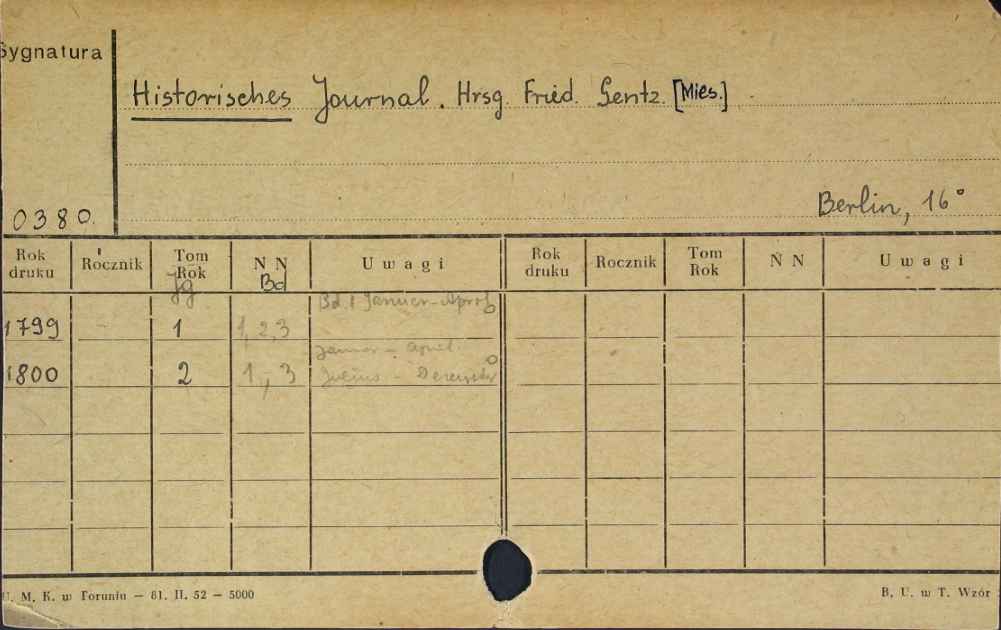 Sygnatura
Historisches Journal. Hrsg. Fried. Gentz. [Mies.]
0380.
Berlin, 16°
Rok druku Rocznik Tom Rok N N Uwagi Rok druku Rocznik Tom Rok N N Uwagi
Jg Bd
Bd. 1 Januar - April
1799 1 1, 2, 3
Januar - April
1800 2 1, 3 Julius - Dezember
U. M. K. w Toruniu — 81. II. 52 — 5000
B. U. w T. Wzór